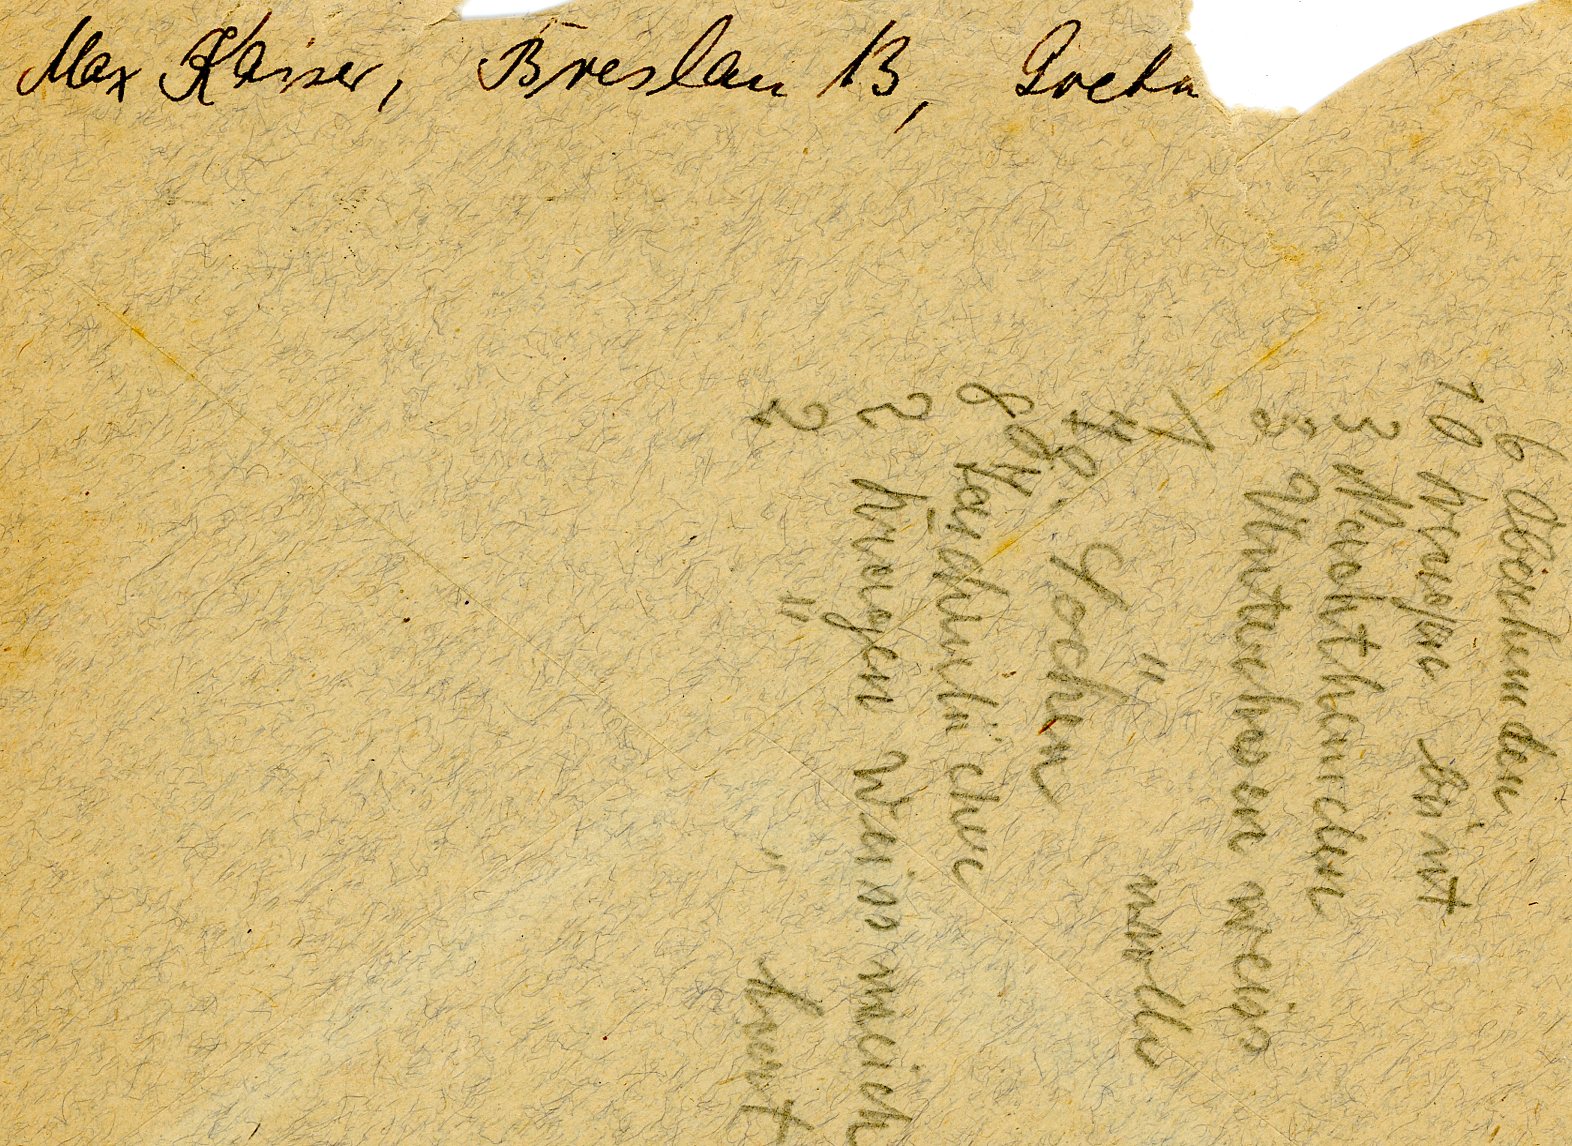 Max Kaiser, Breslau 13, Goeth
6 Oberhemden
10 Kragen bunt
3 Nachthemden
3 Unterhosen weiss
1 " wolle
4 P. Socken
8 Taschentücher
2 Kragen weiss weich
2 " " hart